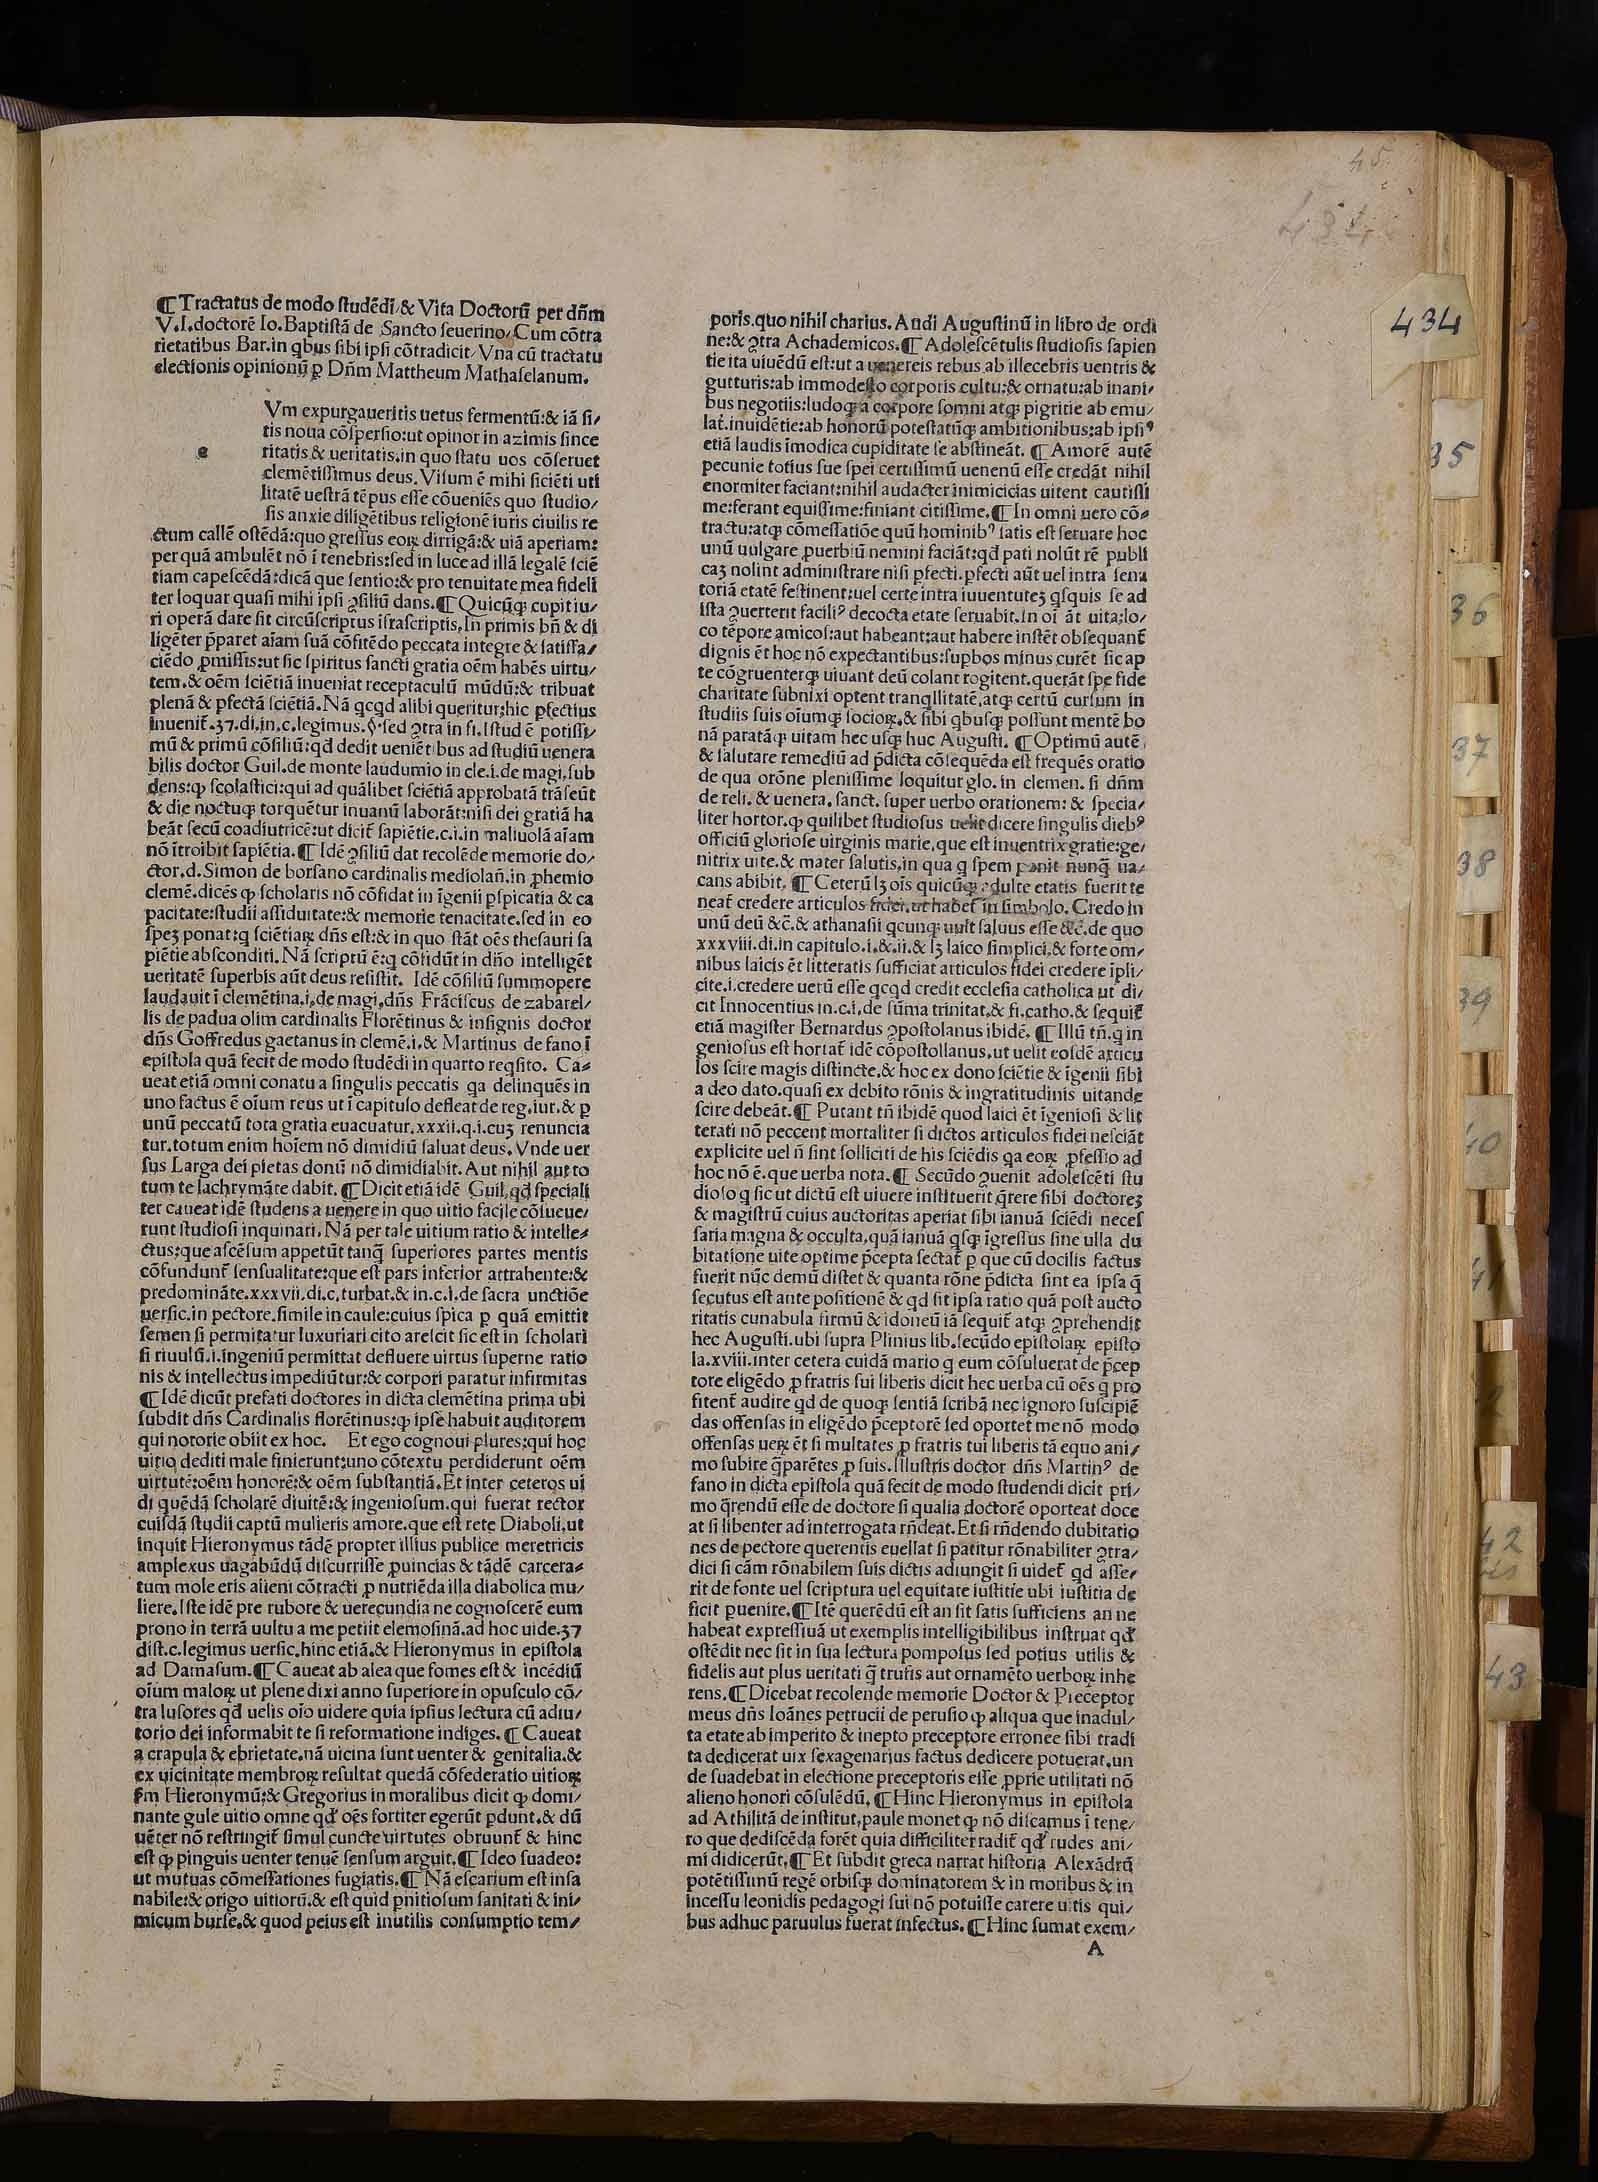 45
434
¶ Tractatus de modo ſtudēdi/& Vita Doctorū per dn̄m
V.I.doctorē Io.Baptiſtā de Sancto ſeuerino/Cum cōtra
rietatibus Bar.in qbus ſibi ipſi cōtradicit/Vna cū tractatu
electionis opinionū ꝑ Dn̄m Mattheum Mathaſelanum.
Vm expurgaueritis uetus fermentū:& iā ſi/
tis noua cōſperſio:ut opinor in azimis ſince
e
ritatis & ueritatis.in quo ſtatu uos cōſeruet
clemētiſſimus deus. Viſum ē mihi ſiciēti uti
litatē ueſtrā tēpus eſſe cōueniēs quo ſtudio/
ſis anxie diligētibus religionē iuris ciuilis re
ctum callē oſtēdā:quo greſſus eoꝝ dirrigā:& uiā aperiam:
per quā ambulēt nō ī tenebris:ſed in luce ad illā legalē ſciē
tiam capeſcēdā:dicā que ſentio:& pro tenuitate mea fideli
ter loquar quaſi mihi ipſi ꝯſiliū dans.¶ Quicūqꝫ cupit iu/
ri operā dare ſit circūſcriptus īſraſcriptis, In primis bn̄ & di
ligēter p̄paret aīam ſuā cōfitēdo peccata integre & ſatiſſa/
ciēdo ꝓmiſſis:ut ſic ſpiritus ſancti gratia oēm habēs uirtu/
tem.& oēm ſciētiā inueniat receptaculū mūdū:& tribuat
plenā & ꝑfectā ſciētiā.Nā qcqd alibi queritur:hic ꝑfectius
inuenit̄.37.di.in.c.legimus.§.ſed ꝯtra in fi.Iſtud ē potiſſi/
mū & primū cōſiliū:qd dedit ueniētibus ad ſtudiū uenera
bilis doctor Guil.de monte laudumio in cle.i.de magi.ſub
dens:ꝙ ſcolaſtici:qui ad quālibet ſciētiā approbatā trāſeūt
& die noctuqꝫ torquētur inuanū laborāt:niſi dei gratiā ha
beāt ſecū coadiutricē:ut dicit̄ ſapiētie.c.i.in maliuolā aīam
nō ītroibit ſapiētia.¶ Idē ꝯſiliū dat recolēde memorie do/
ctor.d.Simon de borſano cardinalis mediolan̄.in ꝓhemio
clemē.dicēs ꝙ ſcholaris nō cōfidat in īgenii ꝑſpicatia & ca
pacitate:ſtudii aſſiduitate:& memorie tenacitate.ſed in eo
ſpeꝫ ponat:q ſciētiaꝝ dn̄s eſt:& in quo ſtāt oēs theſauri ſa
piētie abſconditi. Nā ſcriptū ē:q cōfidūt in dn̄o intelligēt
ueritatē ſuperbis aūt deus reſiſtit. Idē cōſiliū ſummopere
laudauit ī clemētina.i.de magi.dn̄s Frāciſcus de zabarel/
lis de padua olim cardinalis Florētinus & inſignis doctor
dn̄s Goffredus gaetanus in clemē.i.& Martinus de fano ī
epiſtola quā fecit de modo ſtudēdi in quarto reqſito. Ca⸗
ueat etiā omni conatu a ſingulis peccatis qa delinquēs in
uno factus ē oīum reus ut ī capitulo defleat de reg.iur.& ꝑ
unū peccatū tota gratia euacuatur.xxxii.q.i.cuꝫ renuncia
tur.totum enim hoīem nō dimidiū ſaluat deus. Vnde uer
ſus Larga dei pietas donū nō dimidiabit. Aut nihil aut to
tum te lachrymāte dabit.¶ Dicit etiā idē Guil.qd ſpeciali
ter caueat idē ſtudens a uenere in quo uitio facile cōſueue/
runt ſtudioſi inquinari. Nā per tale uitium ratio & intelle⸗
ctus:que aſcēſum appetūt tanq̄ ſuperiores partes mentis
cōfundunt̄ ſenſualitate:que eſt pars inferior attrahente:&
predomināte.xxxvii.di.c.turbat.& in.c.i.de ſacra unctiōe
uerſic.in pectore.ſimile in caule:cuius ſpica ꝑ quā emittit
ſemen ſi permitatur luxuriari cito areſcit ſic eſt in ſcholari
ſi riuulū.i.ingeniū permittat defluere uirtus ſuperne ratio
nis & intellectus impediūtur:& corpori paratur infirmitas
¶ Idē dicūt prefati doctores in dicta clemētina prima ubi
ſubdit dn̄s Cardinalis florētinus:ꝙ ipſe habuit auditorem
qui notorie obiit ex hoc. Et ego cognoui plures:qui hoc
uitio dediti male finierunt:uno cōtextu perdiderunt oēm
uirtutē:oēm honorē:& oēm ſubſtantiā.Et inter ceteros ui
di quēdā ſcholarē diuitē:& ingenioſum.qui fuerat rector
cuiſdā ſtudii captū mulieris amore.que eſt rete Diaboli,ut
inquit Hieronymus tādē propter illius publice meretricis
amplexus uagabūdū diſcurriſſe ꝓuincias & tādē carcera⸗
tum mole eris alieni cōtracti ꝓ nutriēda illa diabolica mu/
liere.Iſte idē pre rubore & uerecundia ne cognoſcerē eum
prono in terrā uultu a me petiit elemoſinā.ad hoc uide.37
diſt.c.legimus uerſic.hinc etiā.& Hieronymus in epiſtola
ad Damaſum.¶ Caueat ab alea que fomes eſt & incēdiū
oīum maloꝝ ut plene dixi anno ſuperiore in opuſculo cō/
tra luſores qd uelis oīo uidere quia ipſius lectura cū adiu/
torio dei informabit te ſi reformatione indiges. ¶ Caueat
a crapula & ebrietate.nā uicina ſunt uenter & genitalia.&
ex uicinitate membroꝝ reſultat quedā cōfederatio uitioꝝ
ſm̄ Hieronymū:& Gregorius in moralibus dicit ꝙ domi/
nante gule uitio omne qd oēs fortiter egerūt ꝑdunt.& dū
uēter nō reſtringit̄ ſimul cuncte uirtutes obruunt̄ & hinc
eſt ꝙ pinguis uenter tenuē ſenſum arguit.¶ Ideo ſuadeo:
ut mutuas cōmeſſationes fugiatis.¶ Nā eſcarium eſt inſa
nabile:& origo uitiorū.& eſt quid ꝑnitioſum ſanitati & ini/
micum burſe.& quod peius eſt inutilis conſumptio tem/
poris.quo nihil charius. Audi Auguſtinū in libro de ordi
ne:& ꝯtra Achademicos.¶ Adoleſcētulis ſtudioſis ſapien
tie ita uiuēdū eſt:ut a uenereis rebus ab illecebris uentris &
gutturis:ab immodeſto corporis cultu:& ornatu:ab inani/
bus negotiis:ludoqꝫ a corpore ſomni atqꝫ pigritie ab emu/
lat̄.inuidētie:ab honorū poteſtatūqꝫ ambitionibus:ab ipſiꝰ
etiā laudis īmodica cupiditate ſe abſtineāt. ¶ Amorē autē
pecunie totius ſue ſpei certiſſimū uenenū eſſe credāt nihil
enormiter faciant:nihil audacter inimicicias uitent cautiſſi
me:ferant equiſſime:finiant citiſſime.¶ In omni uero cō⸗
tractu:atqꝫ cōmeſſatiōe quū hominibꝰ ſatis eſt ſeruare hoc
unū uulgare ꝓuerbiū nemini faciāt:qd pati nolūt rē publi
caꝫ nolint adminiſtrare niſi ꝑfecti.ꝑfecti aūt uel intra ſena
toriā etatē feſtinent:uel certe intra iuuentuteꝫ qſquis ſe ad
iſta ꝯuerterit faciliꝰ decocta etate ſeruabit.In oī āt uita:lo/
co tēpore amicoſ:aut habeant:aut habere inſtēt obſequant̄
dignis ēt hoc nō expectantibus:ſupbos minus curēt ſic ap
te cōgruenterqꝫ uiuant deū colant togitent.querāt ſpe fide
charitate ſubnixi optent tranqllitatē.atqꝫ certū curſum in
ſtudiis ſuis oīumqꝫ ſocioꝝ.& ſibi qbuſqꝫ poſſunt mentē bo
nā paratāqꝫ uitam hec uſqꝫ huc Auguſti. ¶ Optimū autē
& ſalutare remediū ad p̄dicta cōſequēda eſt frequēs oratio
de qua orōne pleniſſime loquitur glo. in clemen. ſi dn̄m
de reli. & uenera. ſanct. ſuper uerbo orationem: & ſpecia/
liter hortor.ꝙ quilibet ſtudioſus uelit dicere ſingulis diebꝰ
officiū glorioſe uirginis marie,que eſt inuentrix gratie:ge/
nitrix uite.& mater ſalutis,in qua q ſpem ponit nunq̄ ua/
cans abibit. ¶ Ceterū lꝫ oīs quicūqꝫ adulte etatis fuerit te
neat̄ credere articulos fidei.ut habet̄ in ſimbolo. Credo in
unū deū &c̄. & athanaſii qcunqꝫ uult ſaluus eſſe &c̄.de quo
xxxviii.di.in capitulo.i.&.ii.& lꝫ laico ſimplici.& forte om/
nibus laicis ēt litteratis ſufficiat articulos fidei credere īpli/
cite.i.credere uerū eſſe qcqd credit eccleſia catholica ut di/
cit Innocentius in.c.i.de ſūma trinitat.& fi.catho.& ſequit̄
etiā magiſter Bernardus ꝯpoſtolanus ibidē. ¶ Illū tn̄.q in
genioſus eſt hortat̄ idē cōpoſtollanus.ut uelit eoſdē articu
los ſcire magis diſtincte.& hoc ex dono ſciētie & īgenii ſibi
a deo dato.quaſi ex debito rōnis & ingratitudinis uitande
ſcire debeāt.¶ Putant tn̄ ibidē quod laici ēt īgenioſi & lit
terati nō peccent mortaliter ſi dictos articulos fidei neſciāt
explicite uel n̄ ſint ſolliciti de his ſciēdis qa eoꝝ ꝓfeſſio ad
hoc nō ē.que uerba nota.¶ Secūdo ꝯuenit adoleſcēti ſtu
dioſo q ſic ut dictū eſt uiuere inſtituerit q̄rere ſibi doctoreꝫ
& magiſtrū cuius auctoritas aperiat ſibi ianuā ſciēdi neceſ
ſaria magna & occulta.quā ianuā qſqꝫ īgreſſus ſine ulla du
bitatione uite optime p̄cepta ſectat̄ ꝑ que cū docilis factus
fuerit nūc demū diſtet & quanta rōne p̄dicta ſint ea ipſa q̄
ſecutus eſt ante poſitionē & qd ſit ipſa ratio quā poſt aucto
ritatis cunabula firmū & idoneū iā ſequit̄ atqꝫ ꝯprehendit
hec Auguſti.ubi ſupra Plinius lib.ſecūdo epiſtolaꝝ epiſto
la.xviii.inter cetera cuidā mario q eum cōſuluerat de p̄cep
tore eligēdo ꝓ fratris ſui liberis dicit hec uerba cū oēs q̄ pro
fitent̄ audire qd de quoqꝫ ſentiā ſcribā nec ignoro ſuſcipiē
das offenſas in eligēdo p̄ceptorē ſed oportet me nō modo
offenſas ueꝝ ēt ſi multates ꝓ fratris tui liberis tā equo ani/
mo ſubire q̄ parētes ꝓ ſuis. Illuſtris doctor dn̄s Martinꝰ de
fano in dicta epiſtola quā fecit de modo ſtudendi dicit pri/
mo q̄rendū eſſe de doctore ſi qualia doctorē oporteat doce
at ſi libenter ad interrogata rn̄deat.Et ſi rn̄dendo dubitatio
nes de pectore querentis euellat ſi patitur rōnabiliter ꝯtra/
dici ſi cām rōnabilem ſuis dictis adiungit ſi uidet̄ qd aſſe/
rit de fonte uel ſcriptura uel equitate iuſtitie ubi iuſtitia de
ficit ꝓuenire.¶ Itē querēdū eſt an ſit ſatis ſufficiens an ne
habeat expreſſiuā ut exemplis intelligibilibus inſtruat qd
oſtēdit nec ſit in ſua lectura pompoſus ſed potius utilis &
fidelis aut plus ueritati q̄ trufis aut ornamēto uerboꝝ inhe
rens.¶ Dicebat recolende memorie Doctor & Preceptor
meus dn̄s Ioānes petrucii de peruſio ꝙ aliqua que inadul/
ta etate ab imperito & inepto preceptore erronee ſibi tradi
ta dedicerat uix ſexagenarius factus dedicere potuerat.un
de ſuadebat in electione preceptoris eſſe ꝓprie utilitati nō
alieno honori cōſulēdū. ¶ Hinc Hieronymus in epiſtola
ad Athilitā de inſtitut.paule monet ꝙ nō diſcamus ī tene/
ro que dediſcēda forēt quia difficiliter radit̄ qd rudes ani/
mi didicerūt.¶ Et ſubdit greca narrat hiſtoria Alexādrū
potētiſſimū regē orbiſqꝫ dominatorem & in moribus & in
inceſſu leonidis pedagogi ſui nō potuiſſe carere uitis qui/
bus adhuc paruulus fuerat infectus.¶ Hinc ſumat exem/
A
434
35
36
37
38
39
40
41
42
bis
43